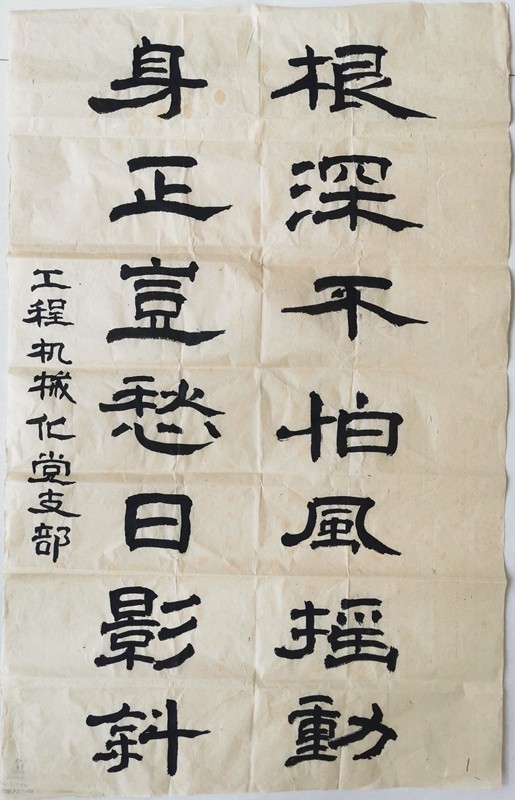 根深不怕風摇動
身正豈愁日影斜
工程机械化党支部